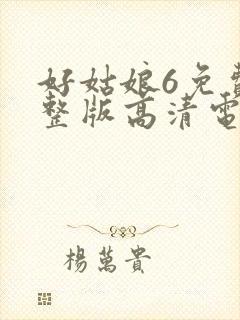 好姑娘6免費
整版高清電
楊萬貴